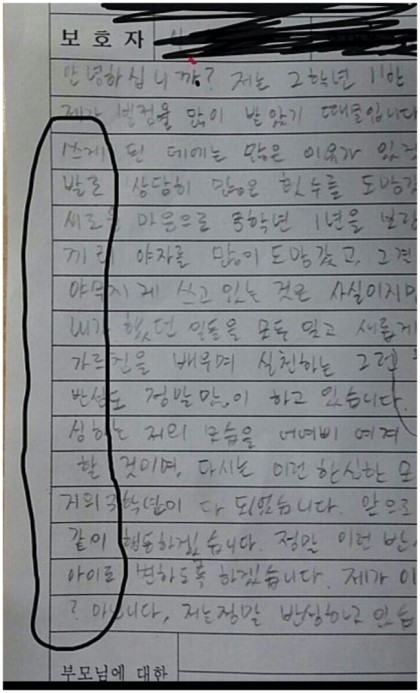 보호자
안녕하십니까? 저는 2학년 11반
제가 벌점을 많이 받았기 때문입니다
쓰게 된 데에는 많은 이유가 있겠
발로 상당히 많은 횟수를 도망갔
새로운 마음으로 중학년 1년을 보람
끼리 야자를 많이 도망갔고, 그건
야무지게 쓰고 있는 것은 사실이지만
내가 했던 일들을 모두 잊고 새롭게
가르침을 배우며 실천하는 그런
반성도 정말 많이 하고 있습니다
심하는 저의 모습을 너여삐 여겨
할 것이며, 다시는 이런 한심한 모
거의 3학년이 다 되었습니다. 앞으로
같이 행동하겠습니다. 정말 이런 반,
아이로 변하도록 하겠습니다. 제가 이
? 아닙니다, 저는 정말 반성하고 있습
부모님에 대한